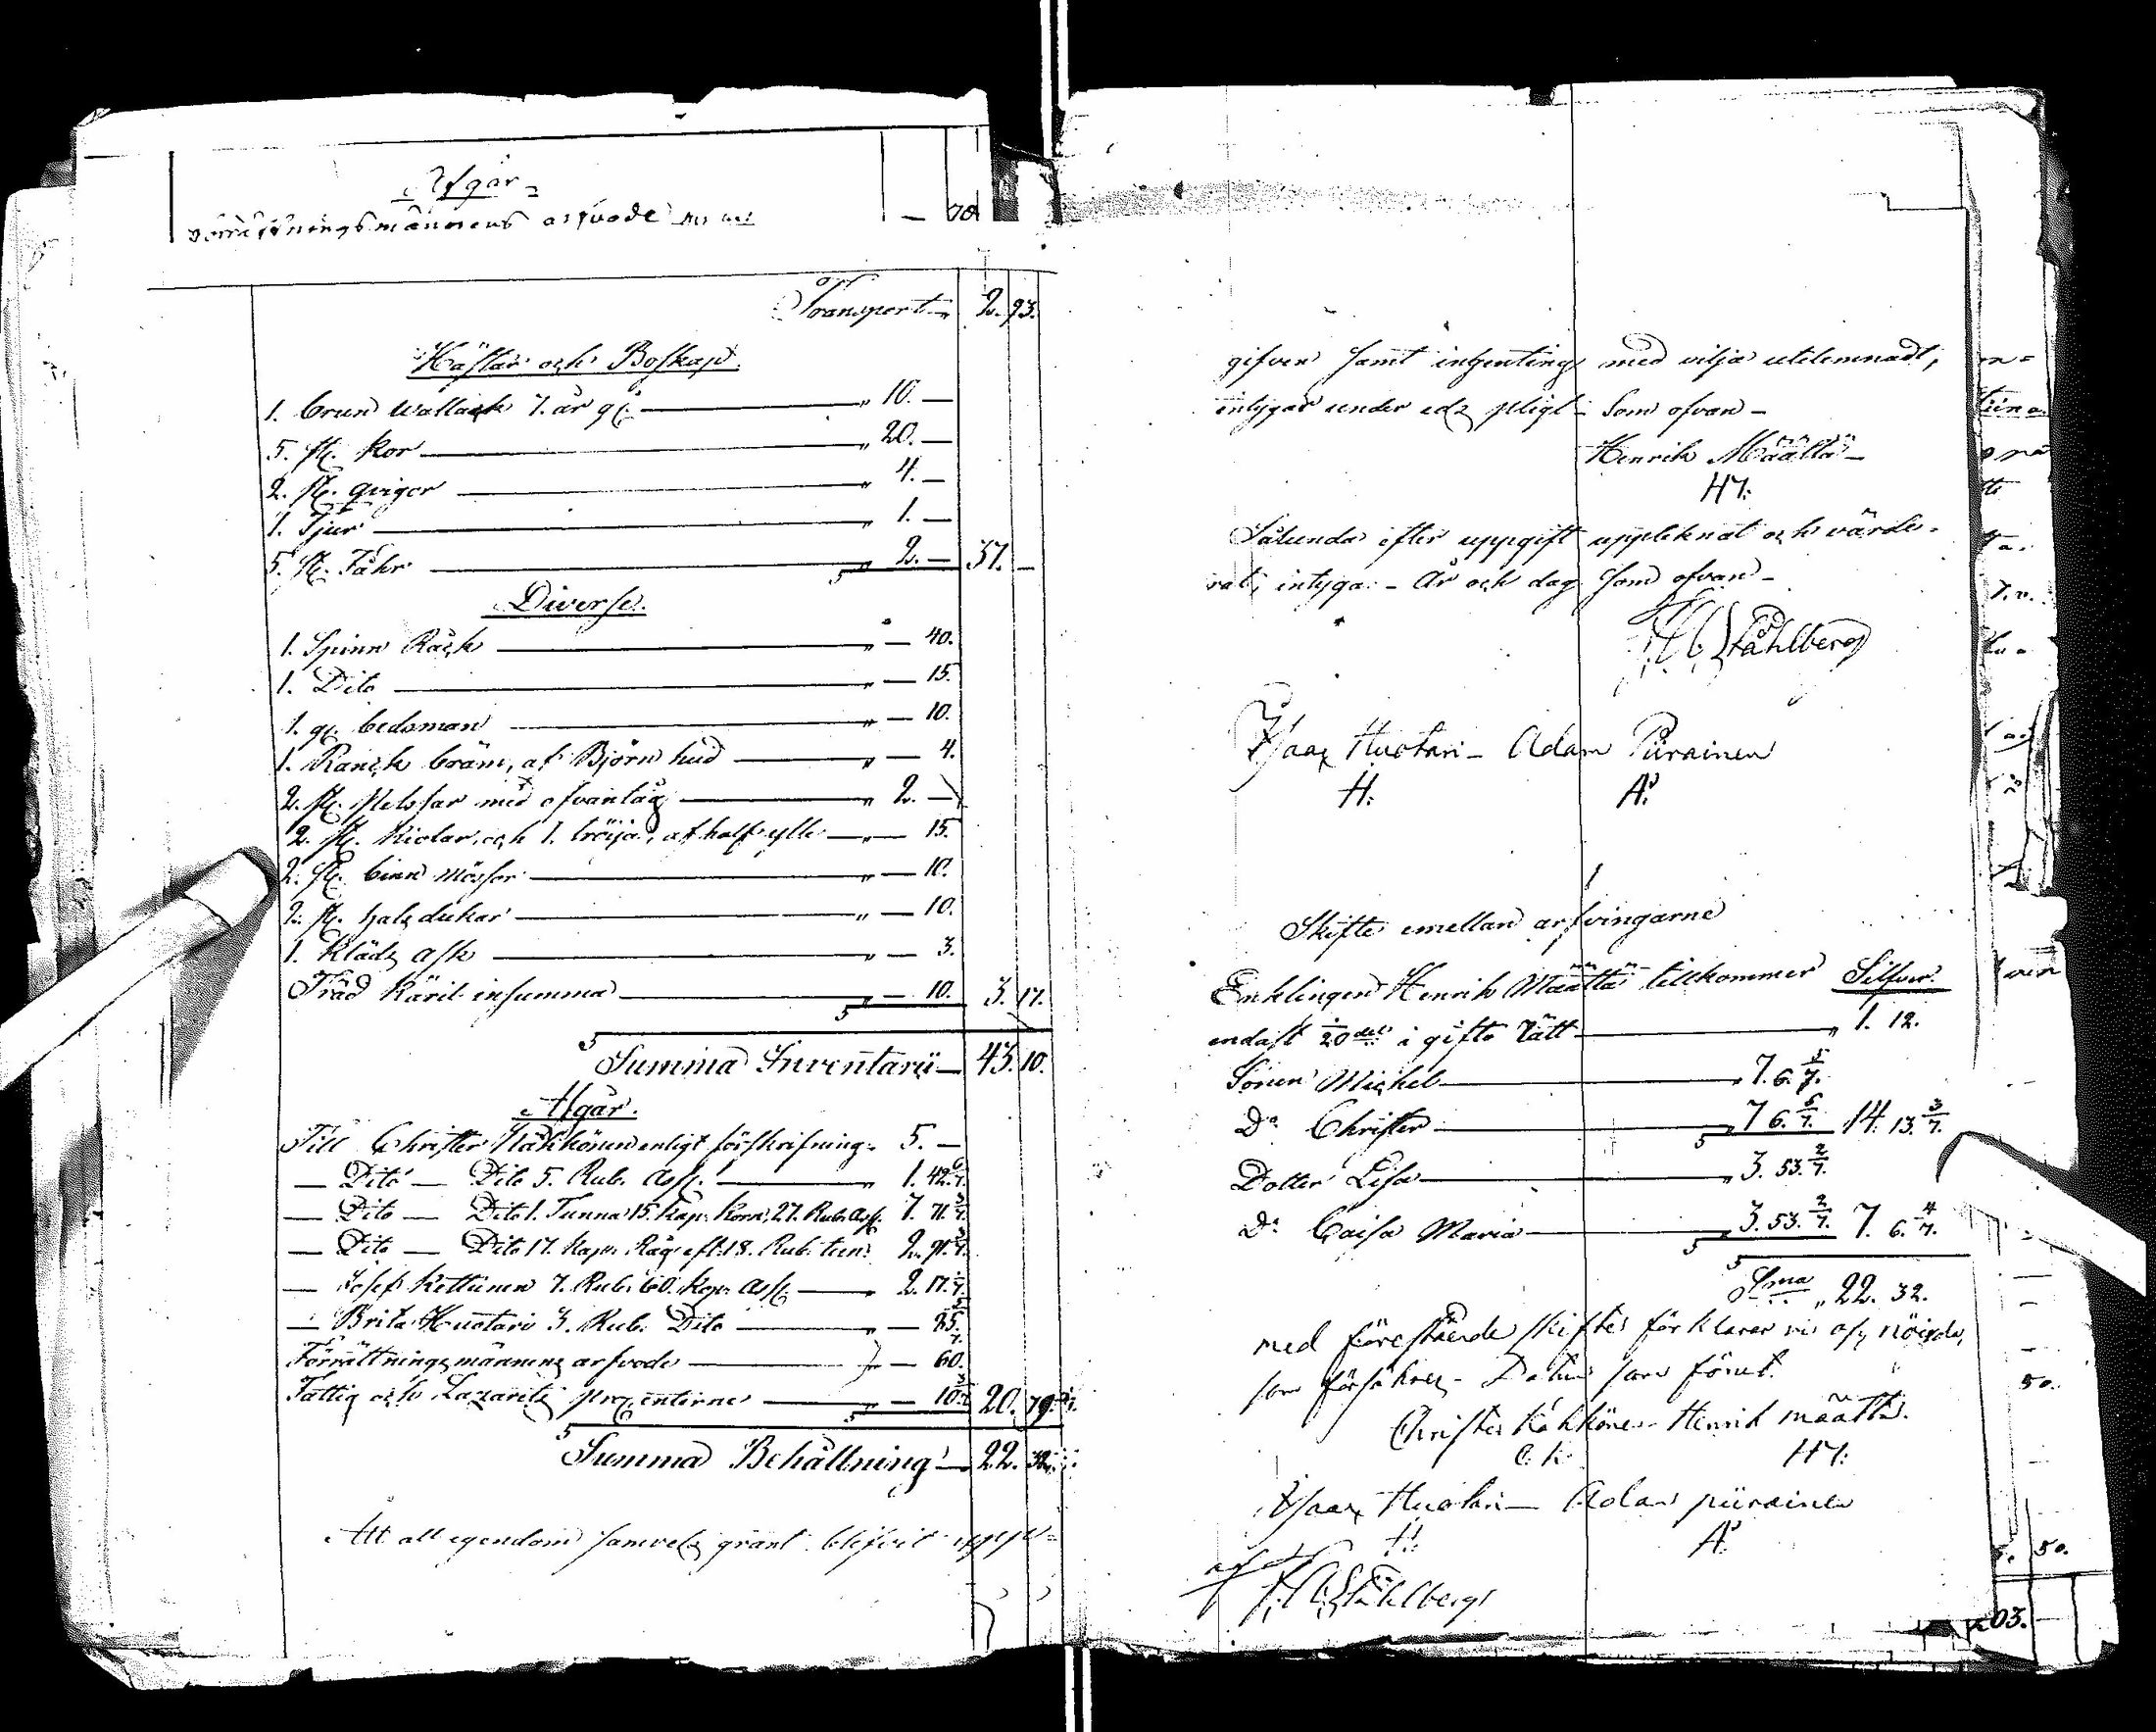 Afgår
Förrättningsmännens arfvode — 70
Transport 2. 93.
Hästar och Boskap.
1. brun Wallack 7. år g. — 10. —
5. st. kor — 20. —
2. st. qvigor — 4. —
1. Tjur — 1. —
5. st. Fåhr — 2. — 37. —
Diverse.
1. Spinn Råck — 40.
1. Dito — 15.
1. g. bedsman — 10.
1. Ranck bräm, af Björn hud — 4.
2. st. Pelssar med ofvanläg — 2. —
2. st. Kiolar och 1. tröija, af half ylle — 15.
2. st. binn mössor — 10.
2. st. halsdukar — 10.
1. Kläds ask — 3.
Träd Käril insumma — 10. 3. 17.
Summa Inventarii — 43. 10.
Afgår.
Till Christer Kähkönen enligt förskrifning 5. —
— Dito — Dito 5. Rub. Ass. — 1. 42. 6/7.
— Dito — Dito 1. Tunna 15. Kap. Korn, 27. Rub. Ass. 7. 71. 3/7.
— Dito — Dito 17. Kap. Råg eft. 18. Rub. tun. 2. 91. 3/7.
— Josef Kettunen 7. Rub. 60. Kop. Ass. — 2. 17. 1/7.
— Brita Huotari 3. Rub. Dito — 85. 5/7.
Förrättningsmännens arfvode — 60.
Fattig och Lazaretts procenterne — 10. 20. 79.
Summa Behållning — 22. 32.
Att all egendom samvetsgrant blifvit uppgifven
gifven samt ingenting med vilja utelemnadt,
intygar under eds pligt – Som ofvan –
Henrik Määttä –
HM:
Sålunda efter uppgift uppteknat och värde-
rat, intyga – År och dag Som ofvan –
Ståhlberg
Isaac Huotari – Adam Piirainen
H: A:
Skifte emellan arfvingarne
Enklingen Henrik Määttä tillkommer Silfver.
endast 1/20 del i gifto Rätt — 1. 12.
Sonen Michel — 7. 6. 5/7.
Do Christer — 7 6. 5/7. 14. 13. 3/7.
Dotter Lisa — 3. 53. 2/7.
Do Caisa Maria — 3. 53. 2/7. 7. 6. 4/7.
Sma 22. 32.
med förestående skifte förklarar vi oss nöigde,
som försäkras – Datum som förut.
Christer Kähkönen – Henrik määttä.
C. K. HM:
Isaac Huotari – Adam piirainen
H: A:
Ståhlberg